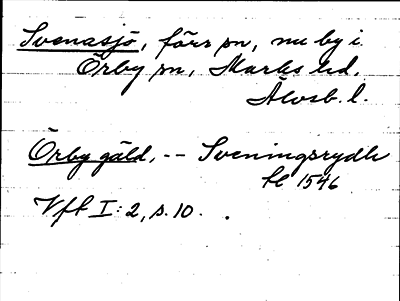 Svenasjö, förs sn, nu by i
Örby sn, Marks hd.
Älvsb. l.
Örby gäld, -- Sveningsrydh
1546
Vft I: 2, s. 10.